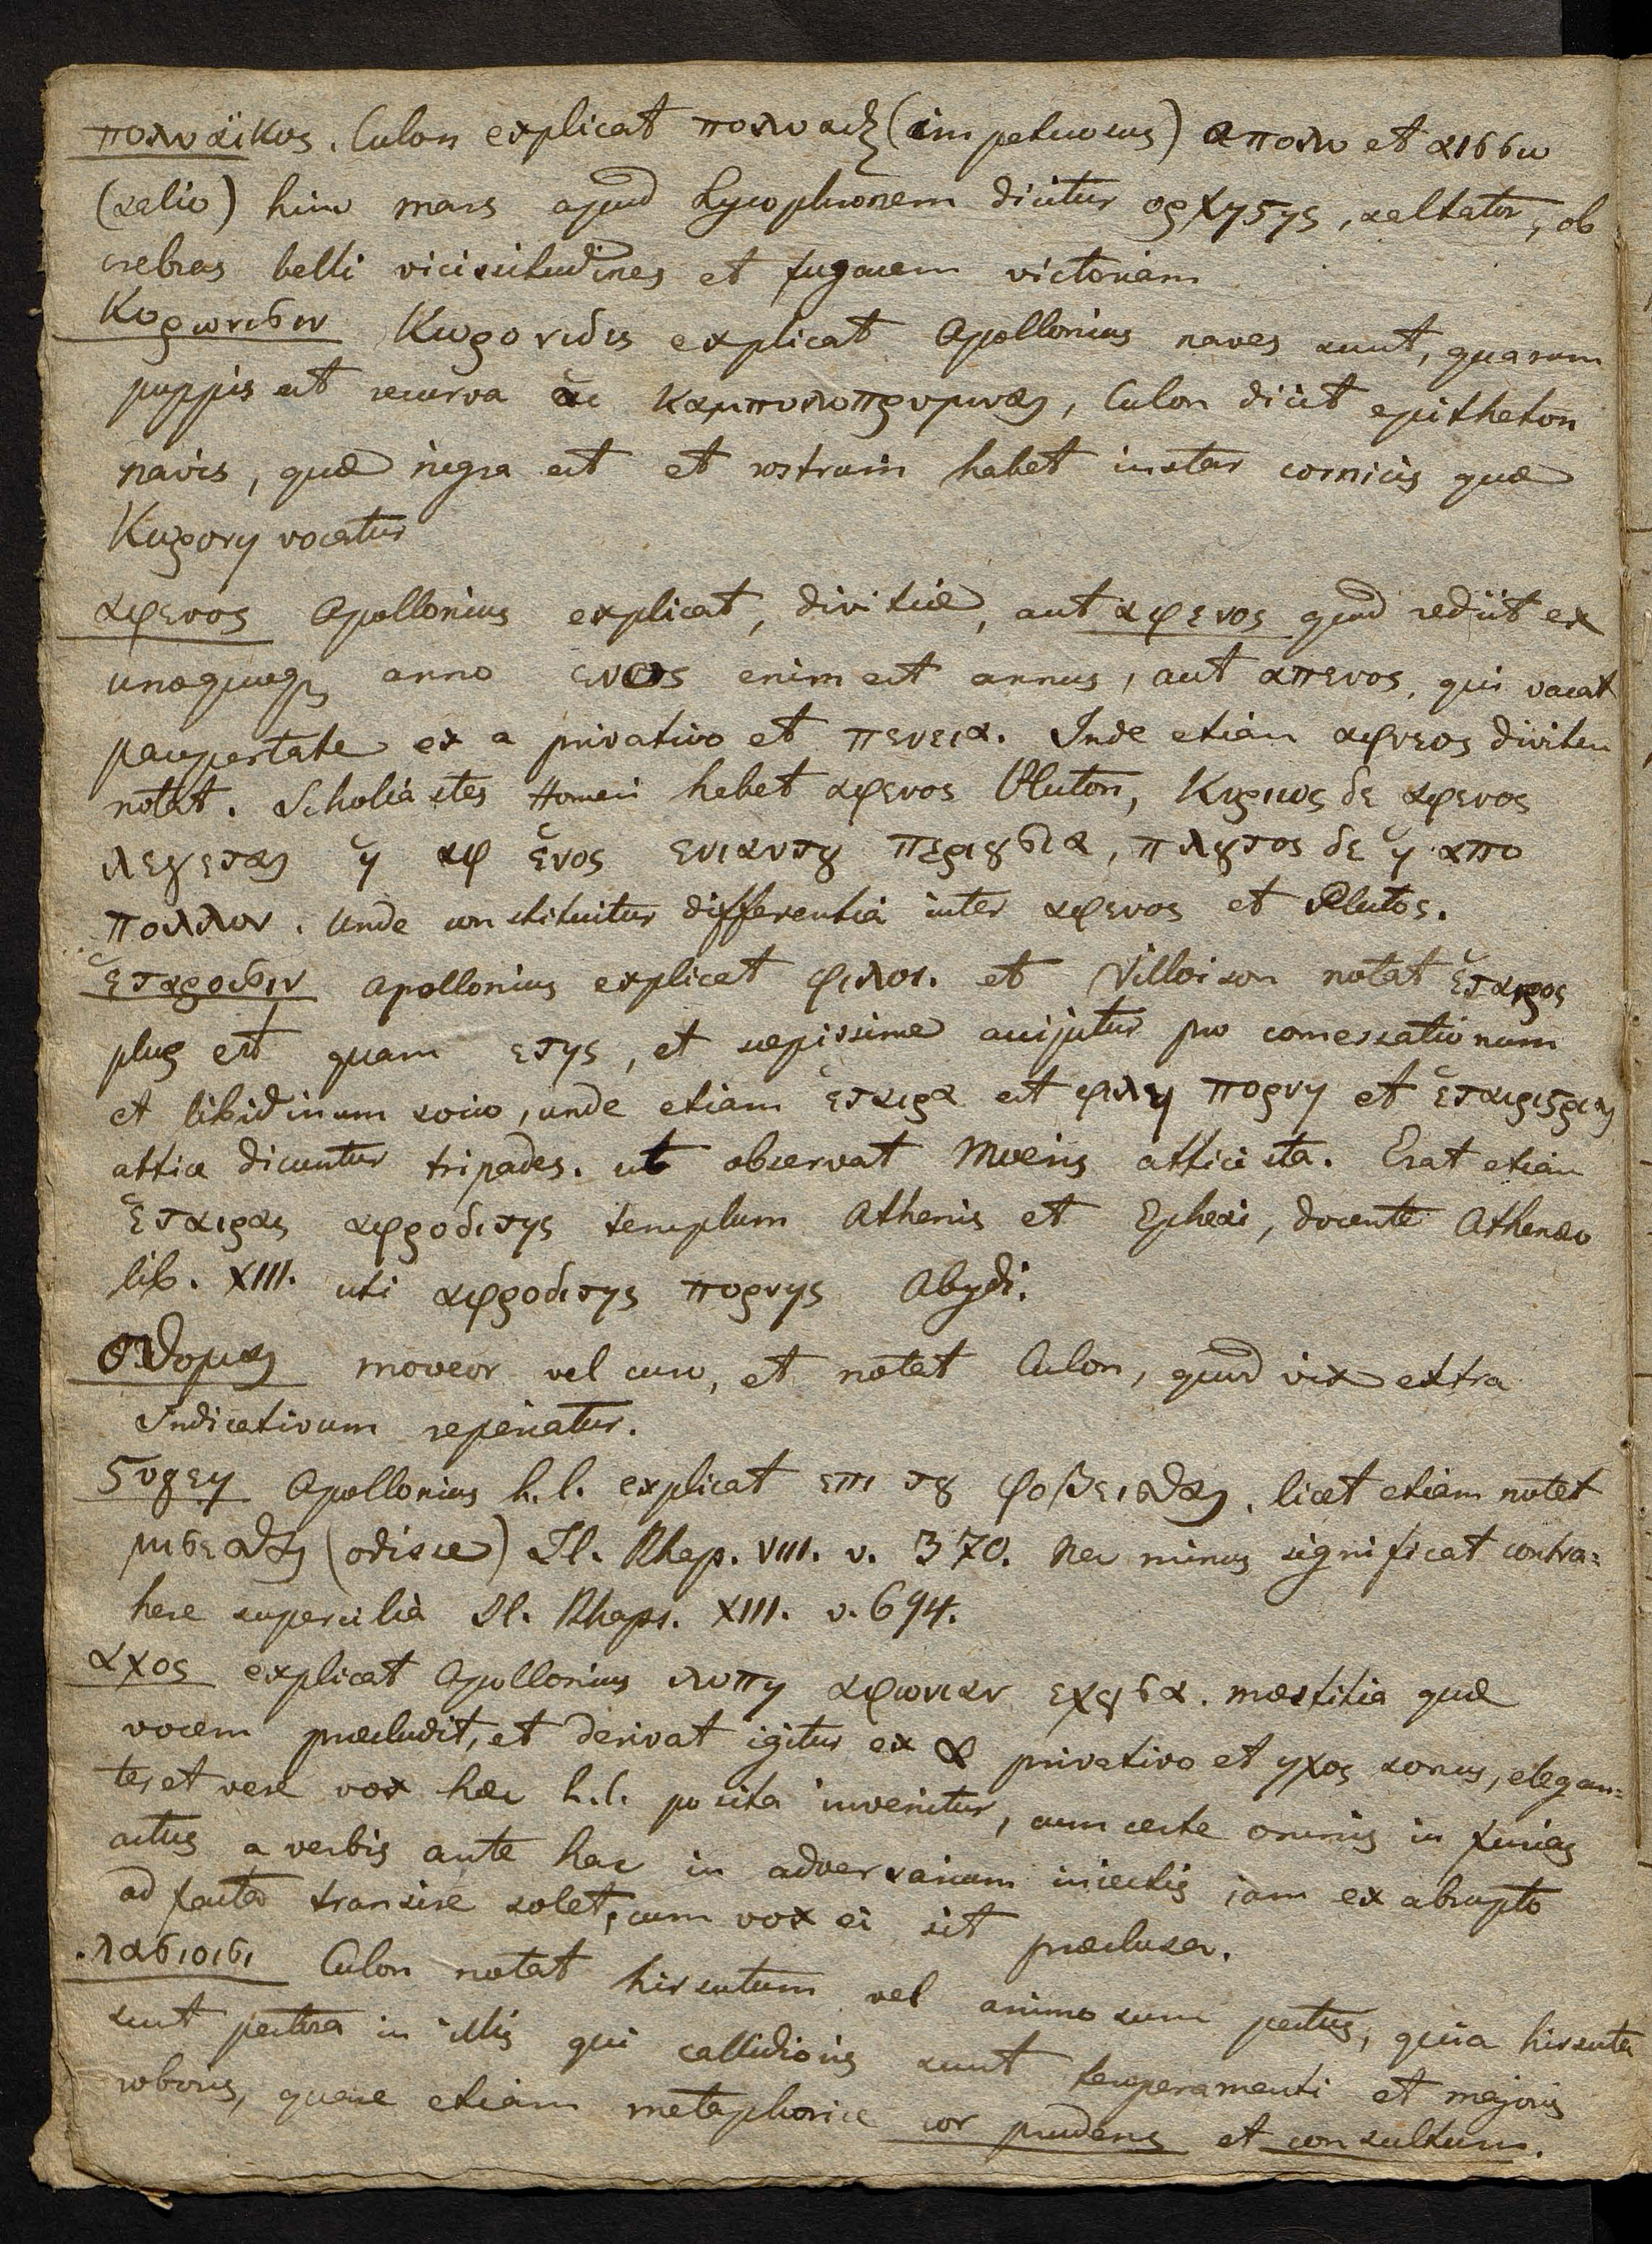 πολυάϊκος. Culon explicat πολυαιξ (impetuosus) a πολυ et αισσω
(salio) hinc mars apud Lycophronem dicitur ορχηστης, saltator, ob
crebras belli vicissitudines et fugacem victoriam
Κορωνισιν Κορονιδες explicat Apollonius naves sunt, quarum
puppis est recurva αι καμπυλοπρυμναι, Culon dicit epitheton
navis, quæ nigra est et rostrum habet instar cornicis quæ
Κορονη vocatur
αφενος Apollonius explicat, divitiæ, aut αφενος quod rediit ex
unoquoq anno ενος enim est annus, aut απενος, qui vacat
paupertate ex a privativo et πενεια. Inde etiam αφνεος divitem
notat. Scholiastes Homeri habet αφενος Pluton, Κυριως δε αφενος
λεγεται ἡ αφ ἑνος ενιαυτȣ περιȣσια, πλȣτος δε ἡ απο
πολλων. Unde constituitur differentia inter αφενος et Plutos.
ἑταροισιν Apollonius explicat φιλοι. et Villoison notat ἑταιρος
plus est quam ετης, et sæpissime accipitur pro comessationum
et libidinum socio, unde etiam ἑταιρα est φιλη πορνη et ἑταιριστριαι
attice dicuntur tripades. ut observat Moeris atticista. Erat etiam
ἑταιρας αφροδιτης templum Athenis et Ephesi, docente Athenæo
lib. XIII. uti αφροδιτης πορνης Abydi.
οθομαι moveor vel curo, et notat Culon, quod vix extra
Indicativum reperiatur.
στυγεη Apollonius h.l. explicat επι τȣ φοβεισθαι, licet etiam notet
μισεισθαι (odisse) Il. Rhap. VIII. v. 370. Nec minus significat contra=
here supercilia Il. Rhaps. XIII. v. 694.
αχος explicat Apollonius λυπη αφωνιαν εχȣσα. mæstitia quæ
vocem præcludit, et derivat igitur ex α privativo et ηχος sonus, elegan=
ter et vere vox hæc h.l. posita invenitur, cum certe omnis in furias
actus a verbis ante hac in adversarium iniectis iam ex abrupto
ad facta transire solet, cum vox ei sit præclusa.
λασιοισι Culon notat hirsutum vel animosum pectus, quia hirsuta
sunt pectora in illis qui callidioris sunt temperamenti et majoris
roboris, quare etiam metaphorice cor prudens et consultum.